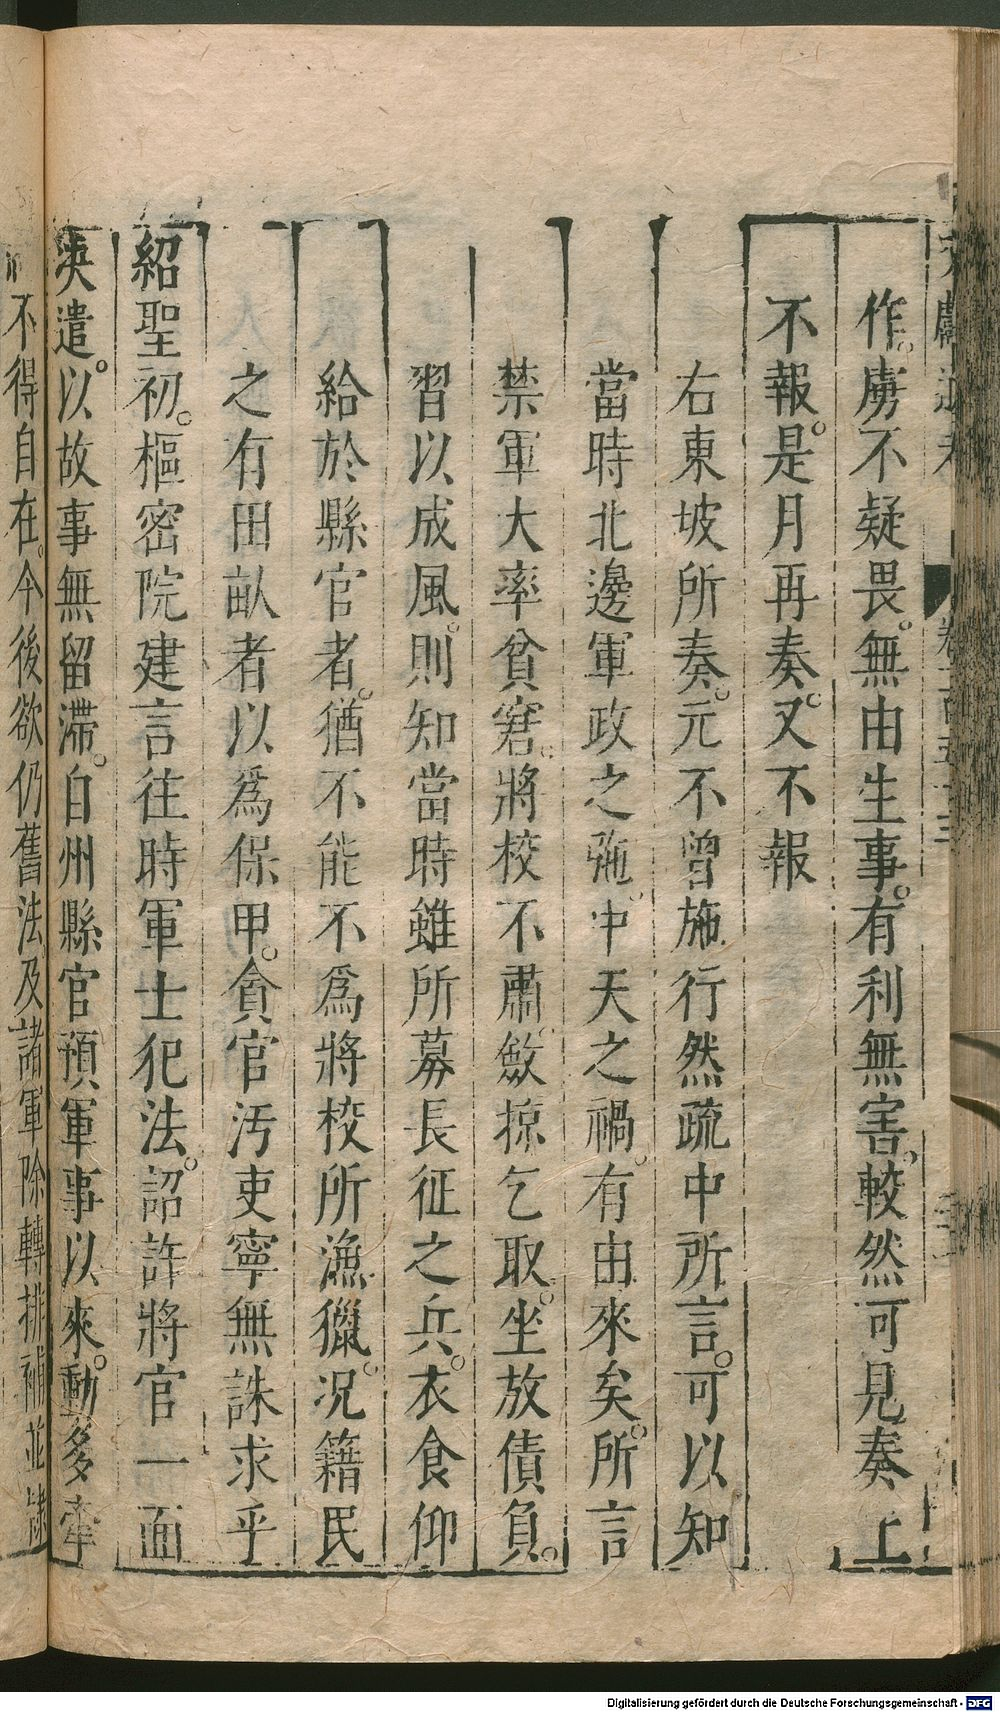 作。虜不疑畏。無由生事。有利無害。較然可見奏上
不報。是月再奏。又不報
右東坡所奏。元不曾施行然疏中所言。可以知
當時北邊軍政之弛。中天之禍。有由來矣。所言
禁軍大率貧窘。將校不肅。斂掠乞取。坐放債負。
習以成風。則知當時雖所募長征之兵。衣食仰
給於縣官者。猶不能不爲將校所漁獵。况籍民
之有田畝者以爲保甲。貪官汚吏寧無誅求乎
紹聖初。樞密院建言往時軍士犯法。詔許將官一面
決遣。以故事無留滯。自州縣官預軍事以來。動多牽
不得自在。今後欲仍舊法。及諸軍除轉排補並隷
Digitalisierung gefördert durch die Deutsche Forschungsgemeinschaft - DFG